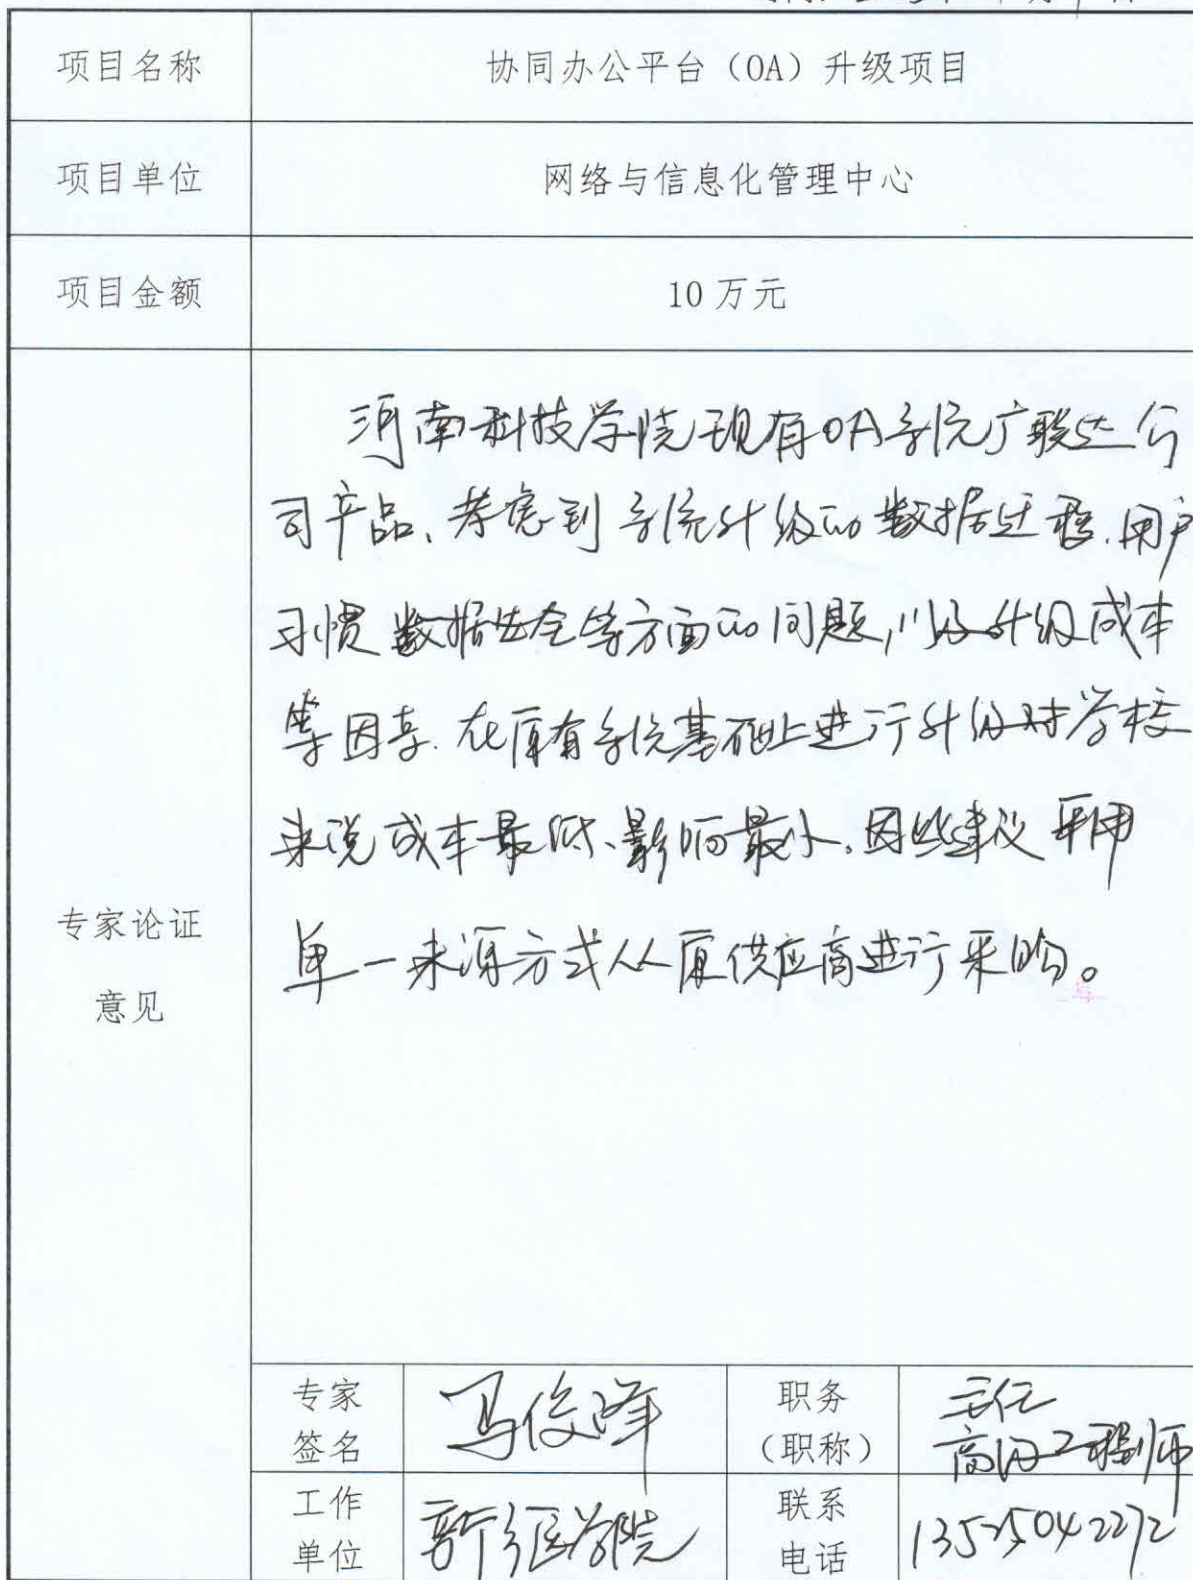 项目名称 协同办公平台（OA）升级项目
项目单位 网络与信息化管理中心
项目金额 10万元
河南科技学院现有OA系统广联达公
司产品、考虑到系统升级的数据迁移、用户
习惯数据安全等方面的问题,以及升级成本
等因素.在原有系统基础上进行升级对学校
来说成本最低、影响最小。因此建议采用
单一来源方式从原供应商进行采购。
专家论证
意见
专家
签名 冯俊峰 职务
（职称） 主任
高级工程师
工作
单位 新乡医学院 联系
电话 13525042272